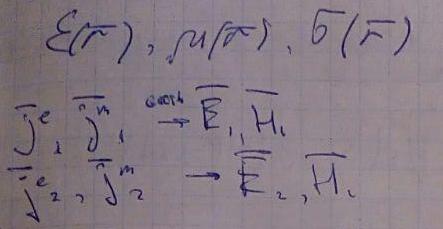 ε(r̄), μ(r̄), σ(r̄)
j̄ᵉ₁, j̄ᵐ₁ → Ē₁, H̄₁
j̄ᵉ₂, j̄ᵐ₂ → Ē₂, H̄₂